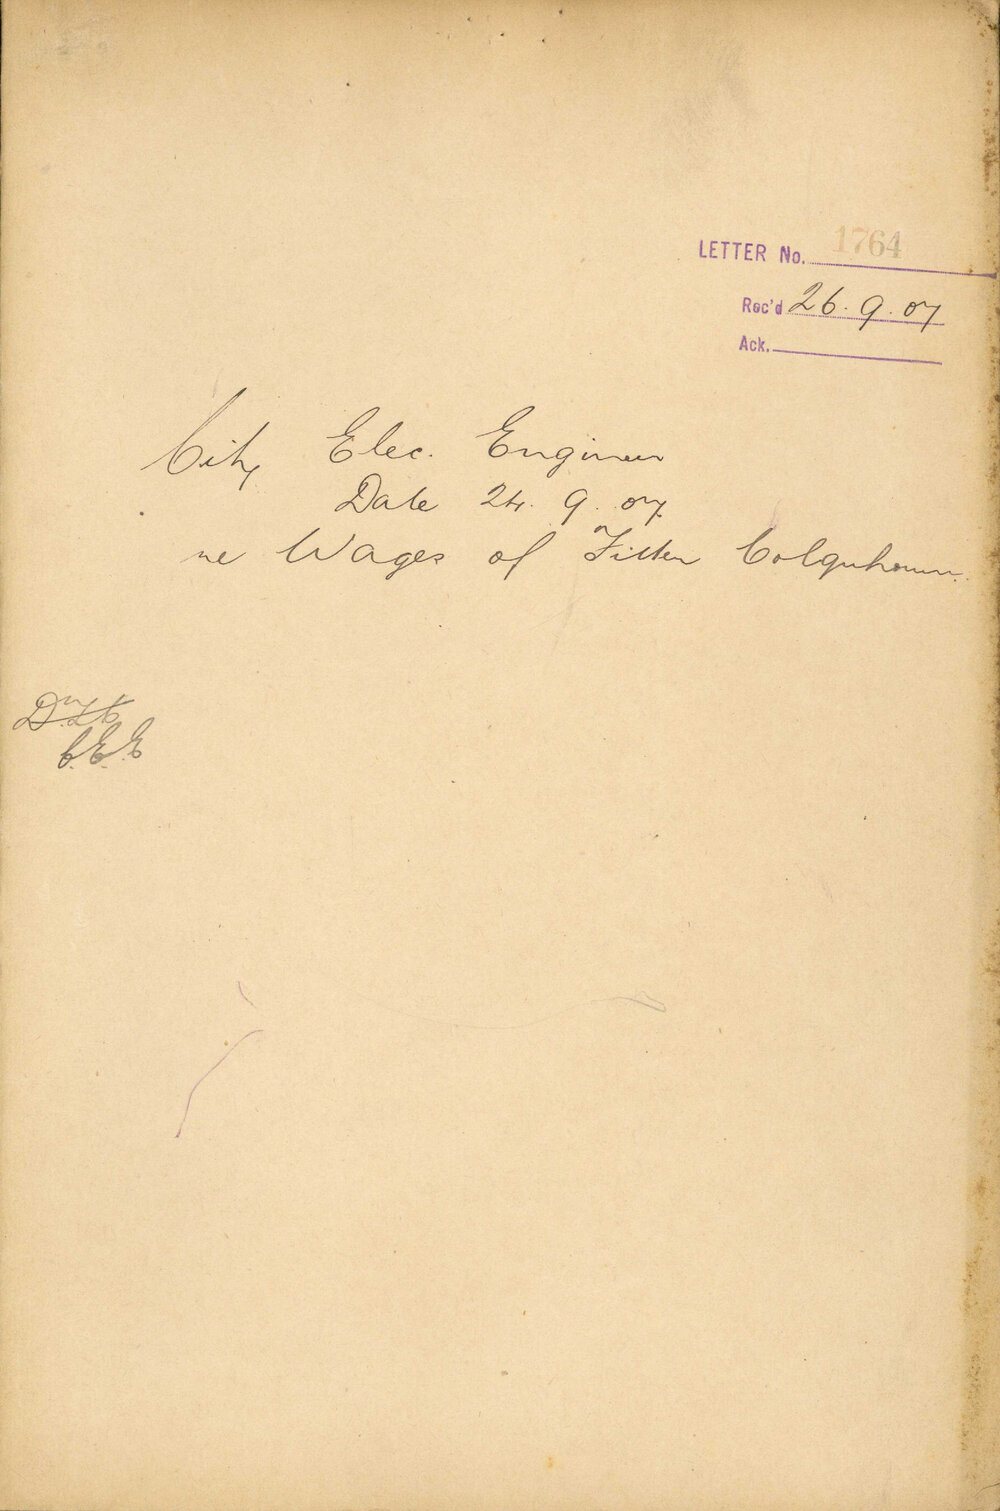 LETTER No. 1764
Rec'd 26.9.07
Ack.
City Elec. Engineer
Date 24.9.07.
re Wages of Fitter Colquhoun.
C.E.E